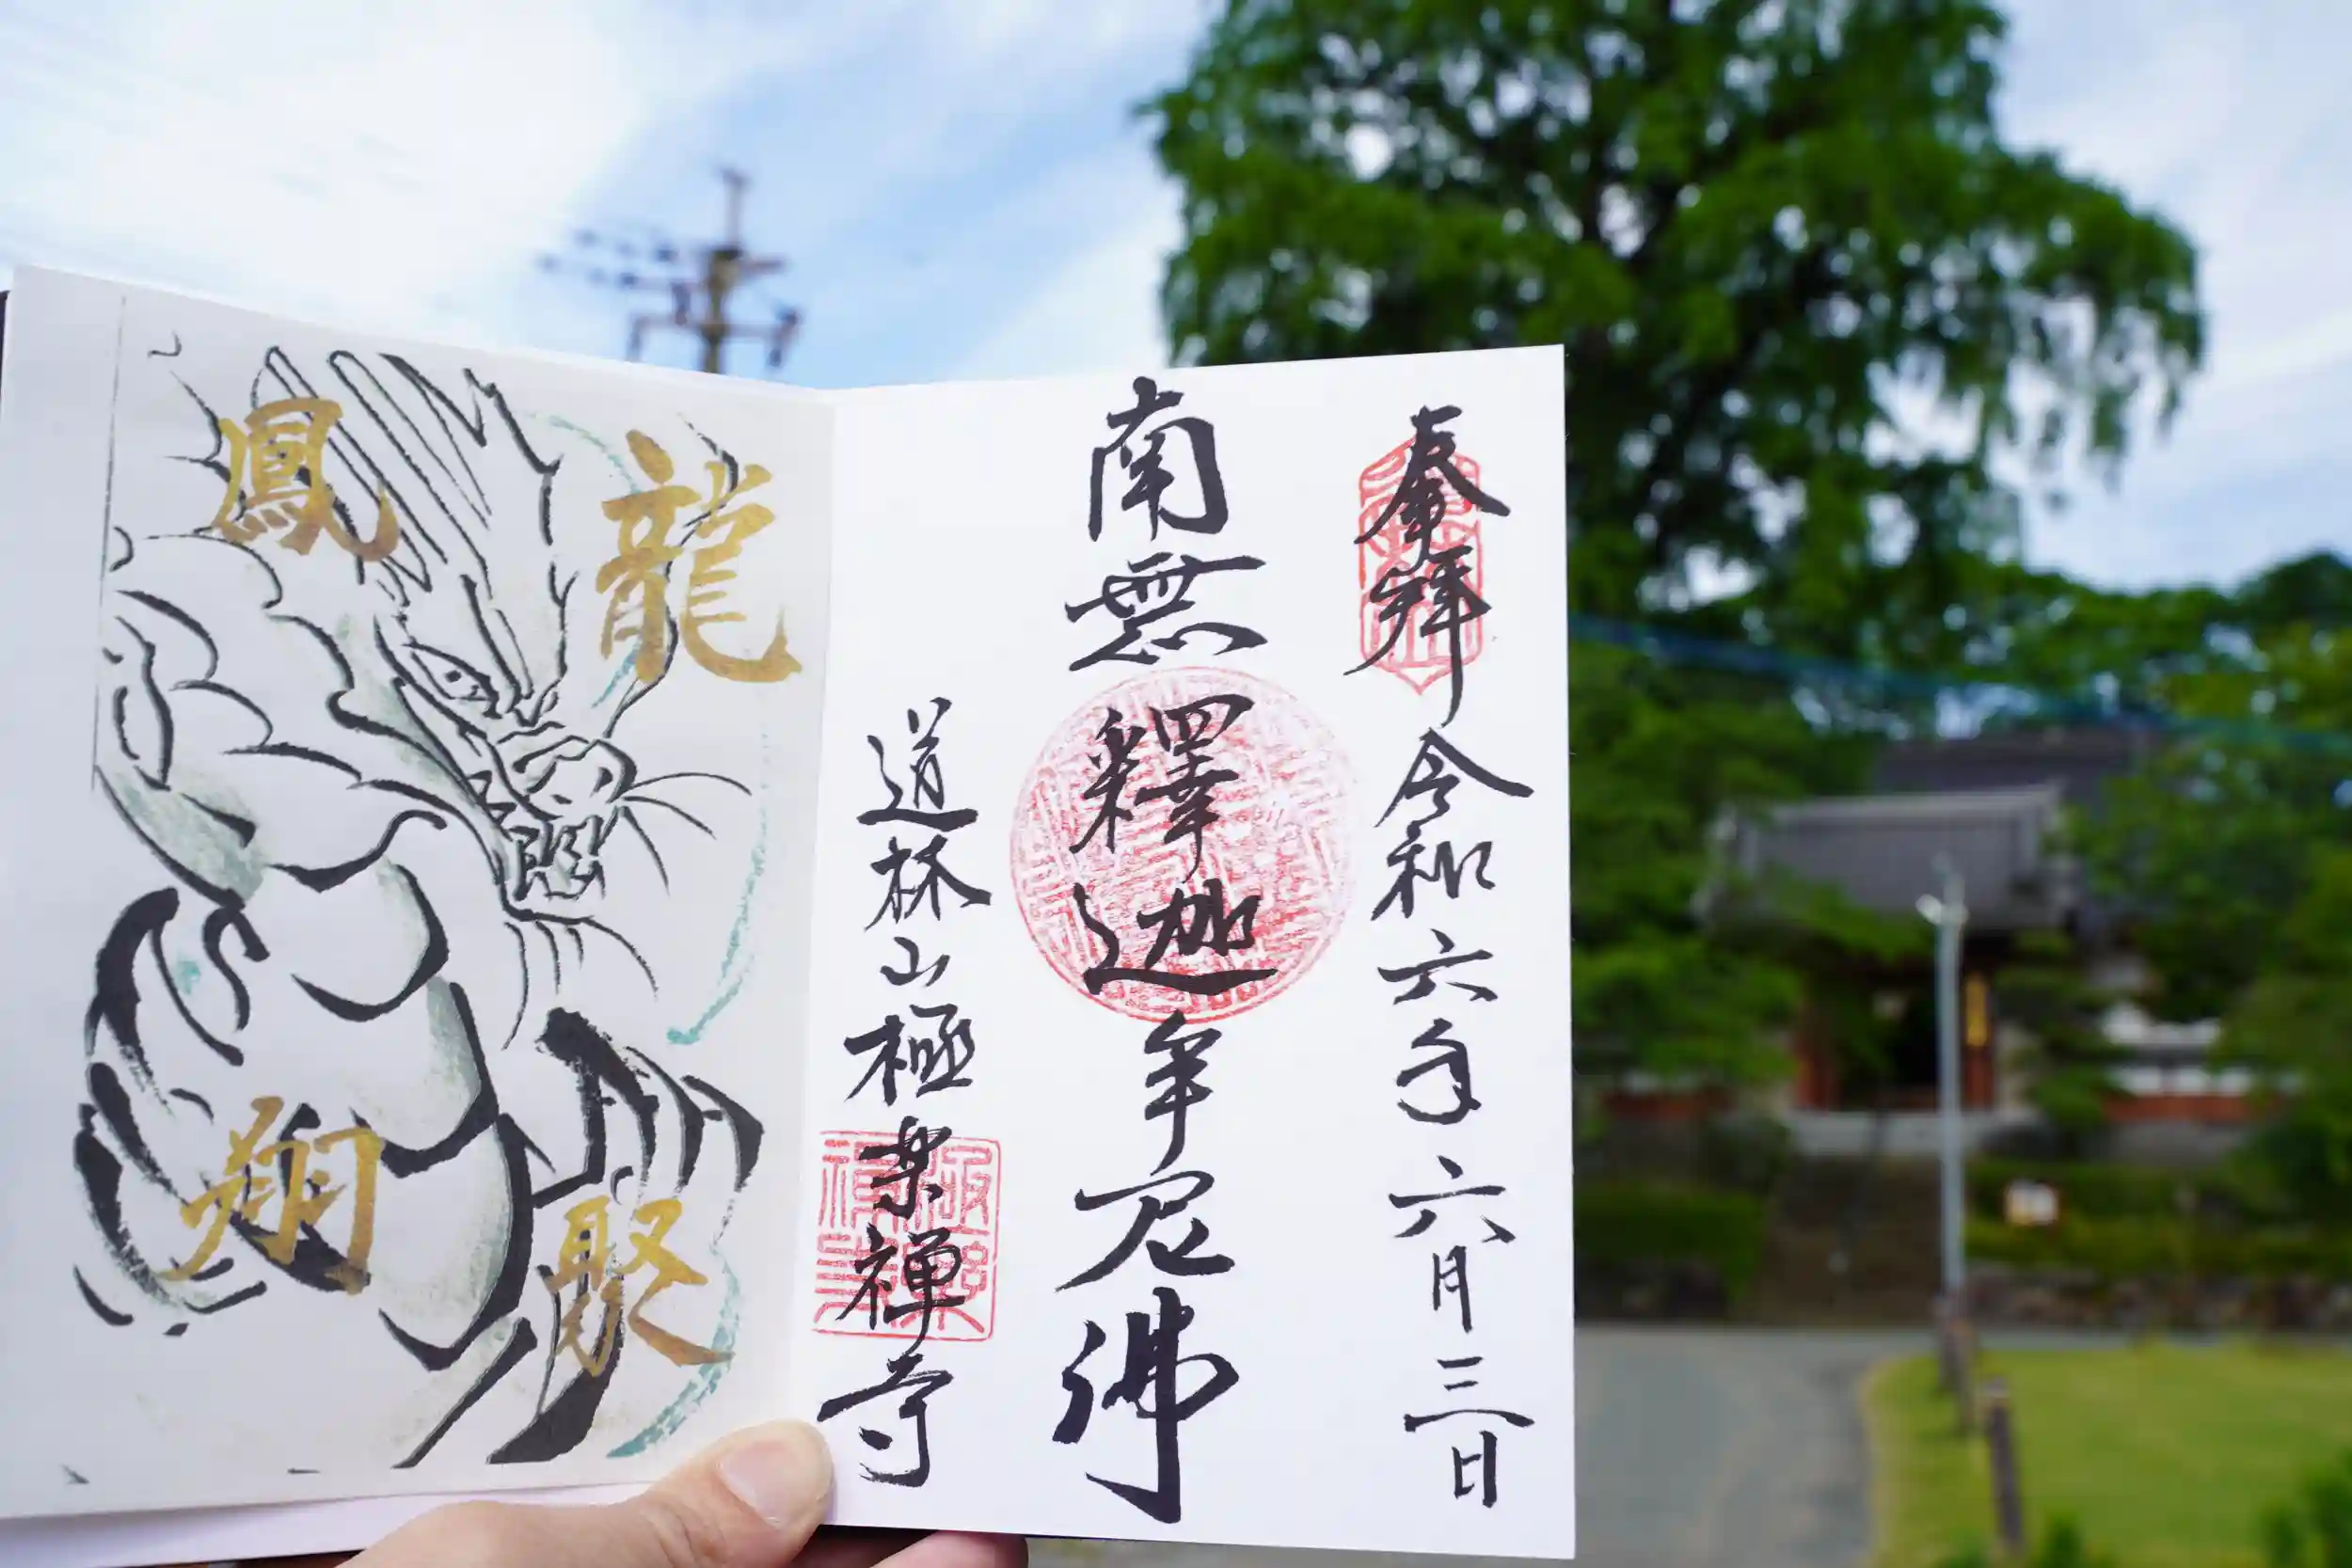 奉拜
令和六年六月三日
南無釋迦牟尼佛
道林山極楽禅寺
龍
鳳
聚
翔